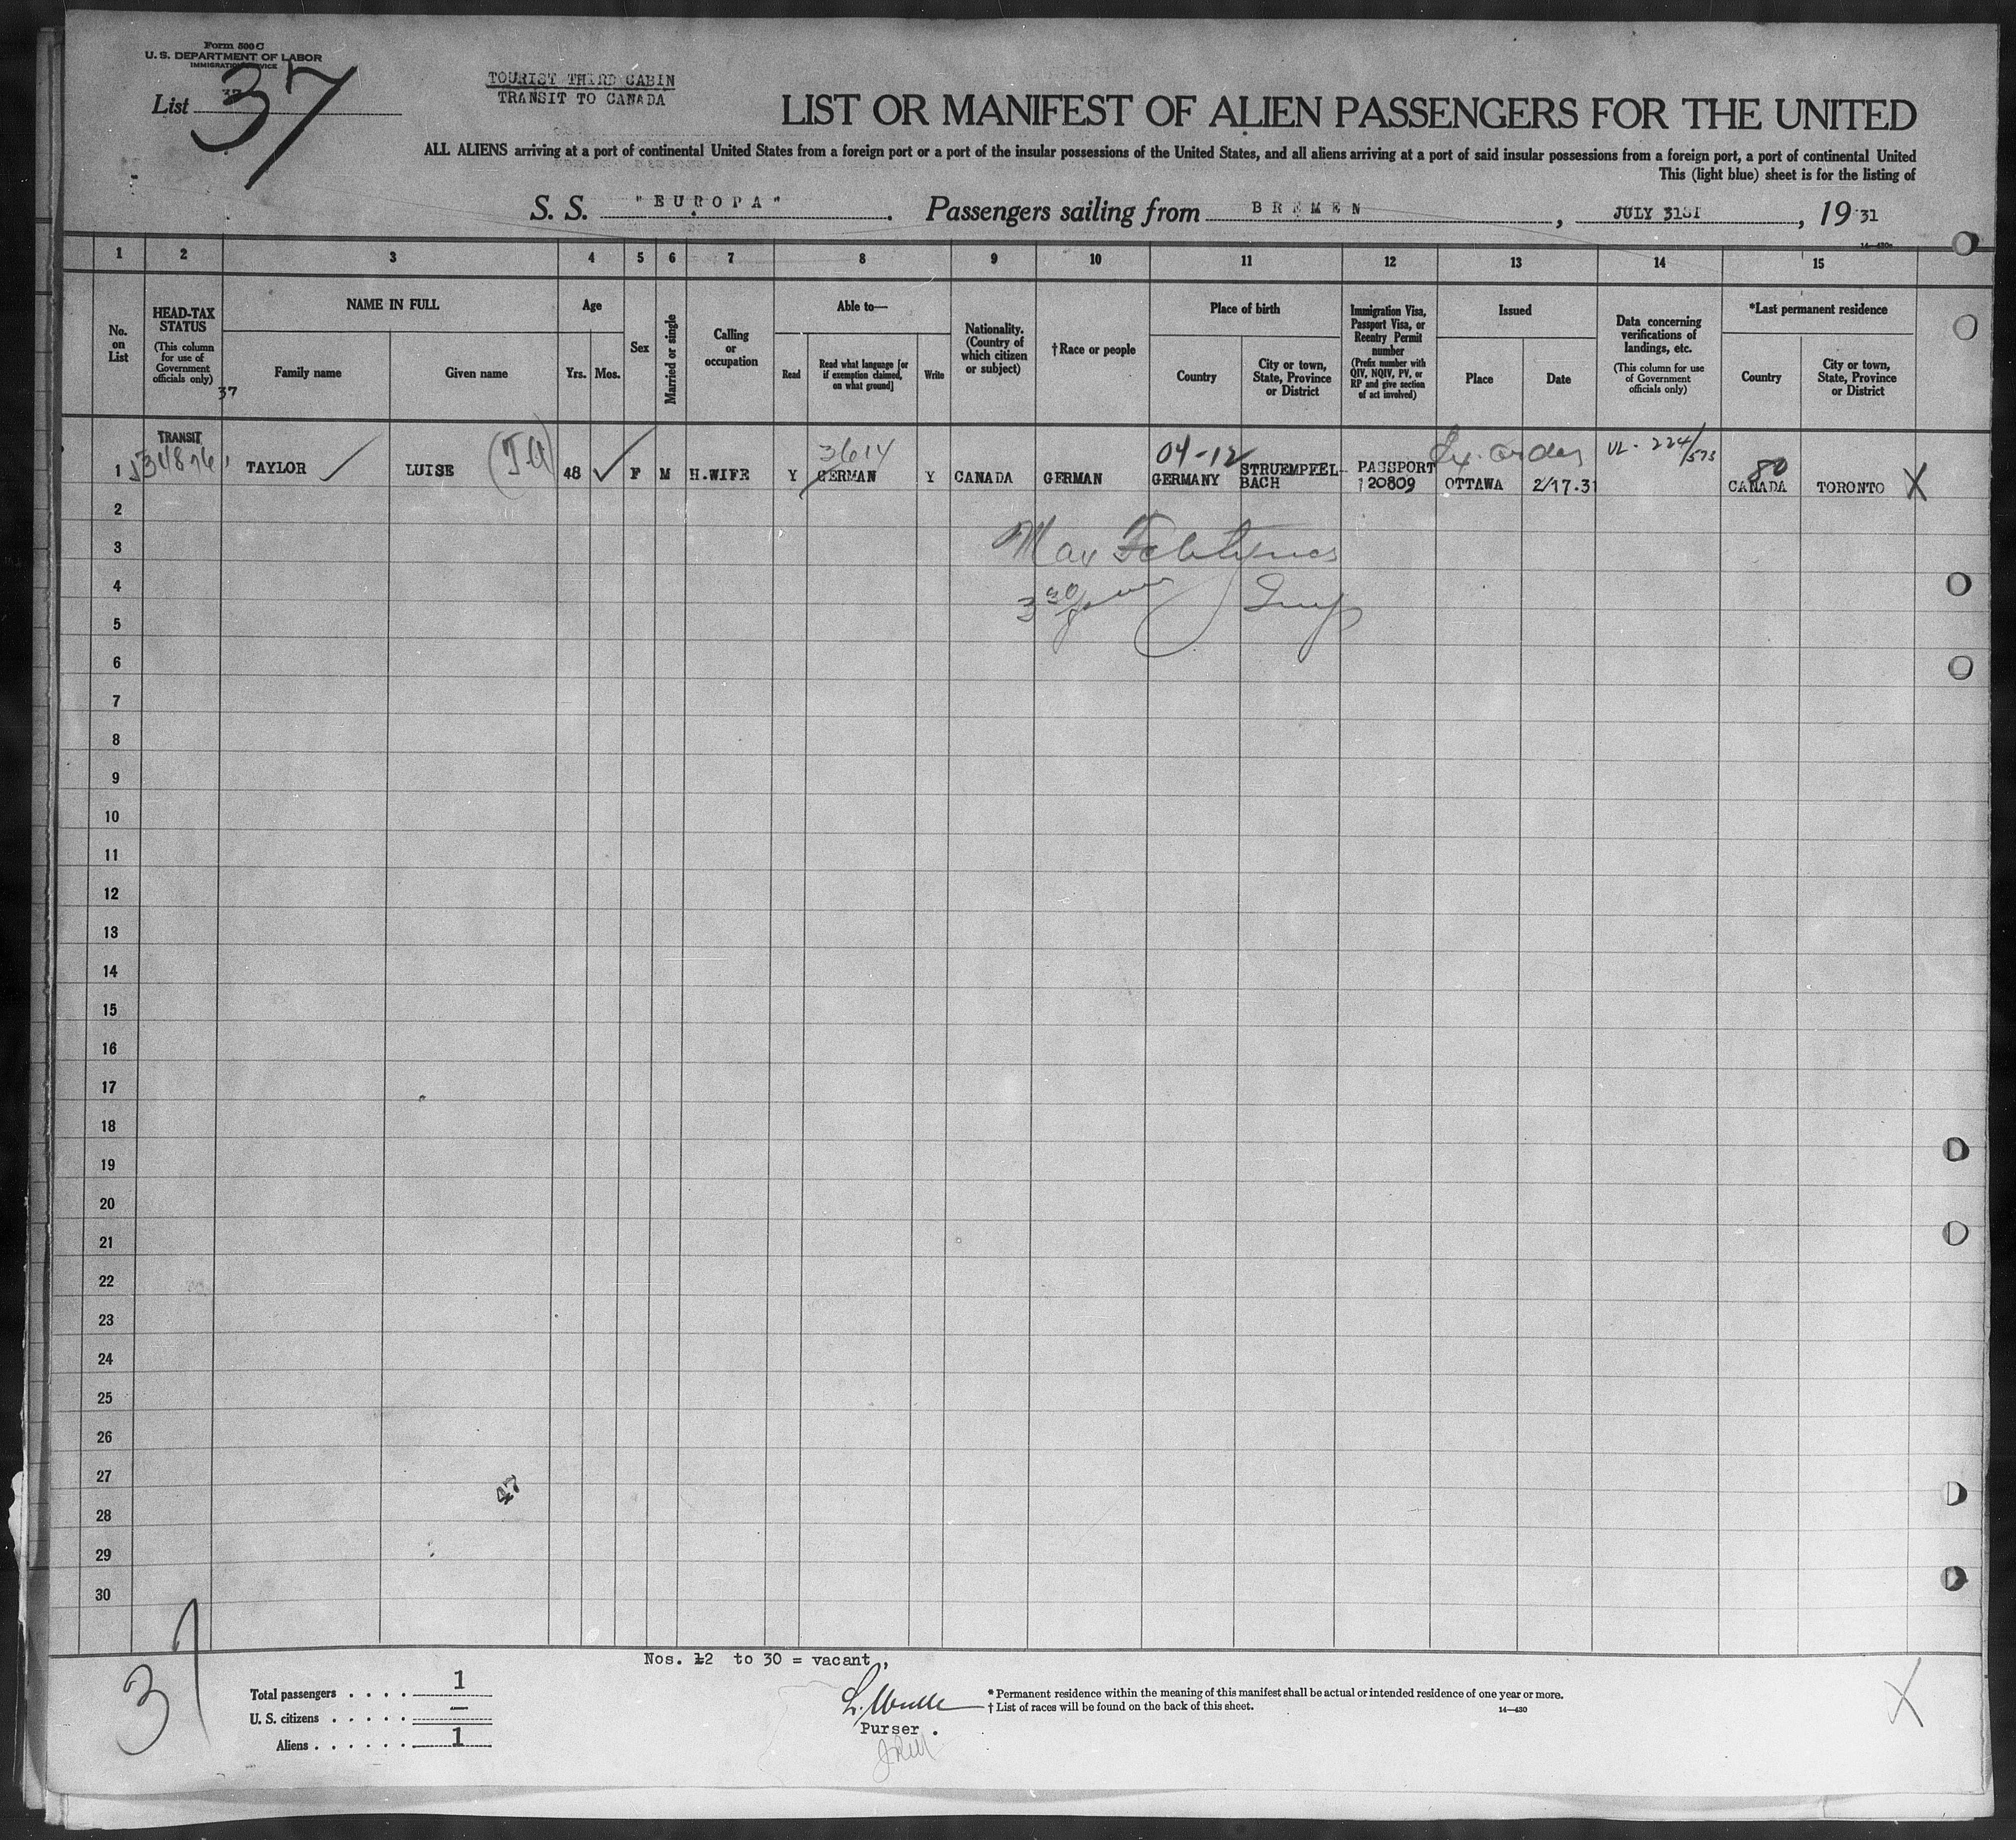 Form 500 C
U. S. DEPARTMENT OF LABOR
IMMIGRATION SERVICE
List 37
37
TOURIST THIRD CABIN
TRANSIT TO CANADA
LIST OR MANIFEST OF ALIEN PASSENGERS FOR THE UNITED
ALL ALIENS arriving at a port of continental United States from a foreign port or a port of the insular possessions of the United States, and all aliens arriving at a port of said insular possessions from a foreign port, a port of continental United
This (light blue) sheet is for the listing of
S. S. "EUROPA". Passengers sailing from BREMEN, JULY 31ST, 1931
14—430a
1 2 3 4 5 6 7 8 9 10 11 12 13 14 15
No. on List
HEAD-TAX STATUS
(This column for use of Government officials only)
37
NAME IN FULL
Family name
Given name
Age
Yrs.
Mos.
Sex
Married or single
Calling or occupation
Able to—
Read
Read what language [or if exemption claimed, on what ground]
Write
Nationality. (Country of which citizen or subject)
†Race or people
Place of birth
Country
City or town, State, Province or District
Immigration Visa, Passport Visa, or Reentry Permit number
(Prefix number with QIV, NQIV, PV, or RP and give section of act involved)
Issued
Place
Date
Data concerning verifications of landings, etc.
(This column for use of Government officials only)
*Last permanent residence
Country
City or town, State, Province or District
TRANSIT
3614
04-12
Ex. order
VL - 224/573
80
1 TAYLOR LUISE 48 F M H.WIFE Y GERMAN Y CANADA GERMAN GERMANY STRUEMPFEL-BACH PASSPORT 120809 OTTAWA 2/17.31 CANADA TORONTO X
2
3
4
5
6
7
8
9
10
11
12
13
14
15
16
17
18
19
20
21
22
23
24
25
26
27
47
28
29
30
37
Nos. 2 to 30 = vacant,
Total passengers . . . . 1
U. S. citizens . . . . . —
Aliens . . . . . . 1
Purser .
* Permanent residence within the meaning of this manifest shall be actual or intended residence of one year or more.
† List of races will be found on the back of this sheet.
14—430
X